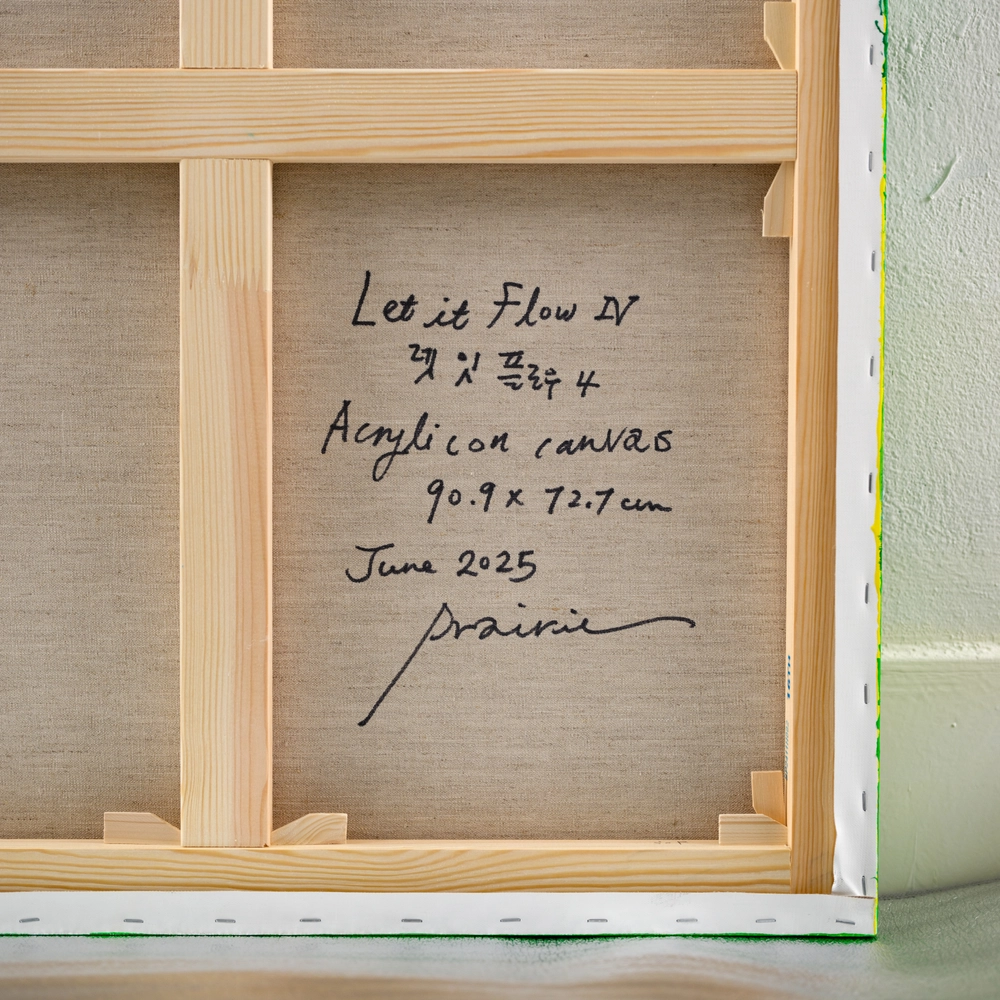 Let it Flow IV
렛 잇 플로우 4
Acrylic on canvas
90.9 x 72.7 cm
June 2025
prairie